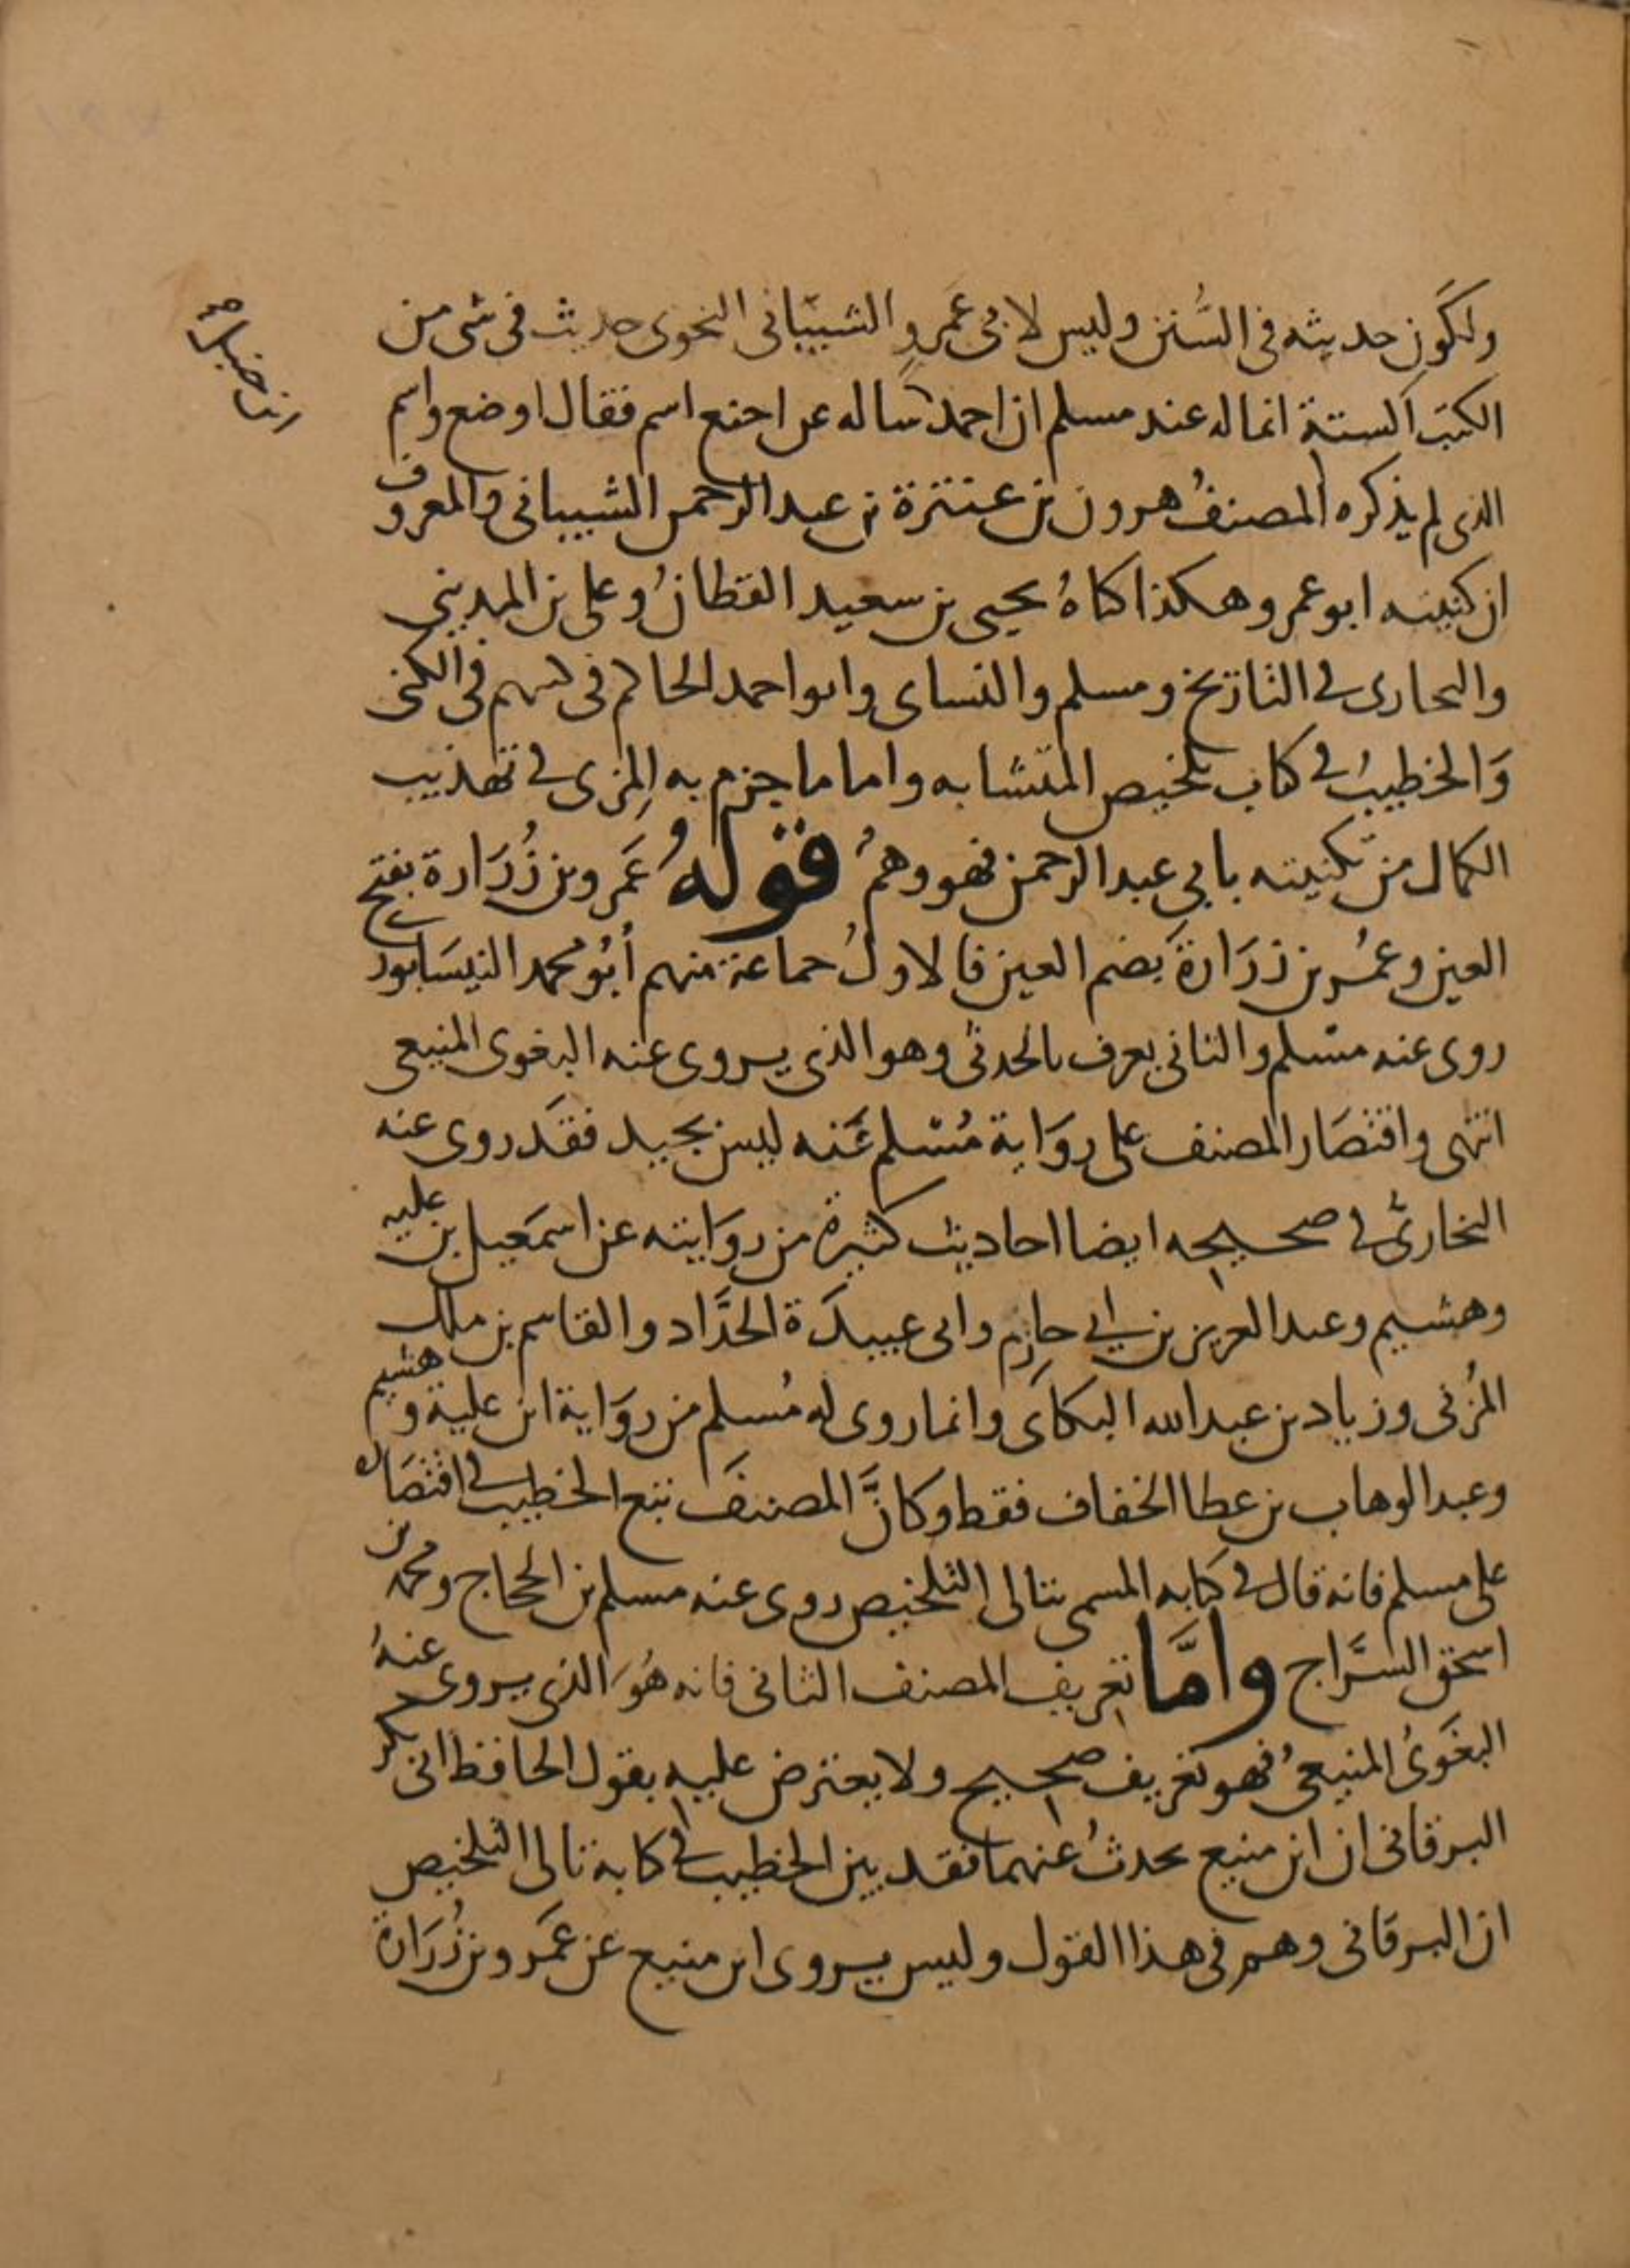 ولكون حديثه في السنن وليس لابي عمرو الشيباني النحوي حديث في شى من
الكتب الستة انما له عند مسلم ان احمد ساله عن اخنع اسم فقال اوضع واسم
الذي لم يذكره المصنف هرون بن عنترة بن عبد الرحمن الشيباني والمعروف
ان كنيته ابو عمرو هكذا كناهُ يحيى بن سعيد القطان وعلى بن المديني
والبخارى في التاريخ ومسلم والنساى وابو احمد الحاكم في كتبهم في الكنى
والخطيب في كتاب تلخيص المتشابه واما ما جزم به المزى في تهذيب
الكمال من تكنيته بابي عبد الرحمن فهو وهمُ قوله عَمرو بن زُرَارة بفتح
العين وعُمر بن زرَارة بضم العين فالاول جماعة منهم أبُو محمد النيسَابورى
روى عنه مسْلم والثاني يعرف بالحدثى وهو الذي يروى عنه البغوى المنيعى
انتهى واقتصَار المصنف على روَاية مُسْلم عَنه ليس بجيد فقد روى عنه
البخارىُّ في صحيحه ايضا احاديث كثيرة من روَايته عن اسمَعيل بن عليه
وهشيم وعبد العزيز بن ابي حازم وابى عبيدَة الحدَّاد والقاسم بن ملك
المزُنى وزياد بن عبد الله البكاى وانما روى له مُسلم من روَاية ابن علية وهشيم
وعبد الوهاب بن عطا الخفاف فقط وكانَّ المصنفَ تبع الخطيب في اقتصَاره
على مسلم فانه قال في كتابه المسمى بتالى التلخيص روى عنه مسلم بن الحجاج ومحمد بن
اسحق السَّراج وامَّا تعريف المصنف الثانى فانه هُوَ الذي يروى عنهُ
البغَوىُ المنيعىُ فهو تعريف صحيح ولا يعترض عليه بقول الحافظ ابى بكر
البرقاني ان ابن منيع يحدثُ عنهما فقد بين الخطيب في كتابه تالى التلخيص
ان البرقاني وهم في هذا القول وليس يروى ابن منيع عن عَمرو بن زُرَارة